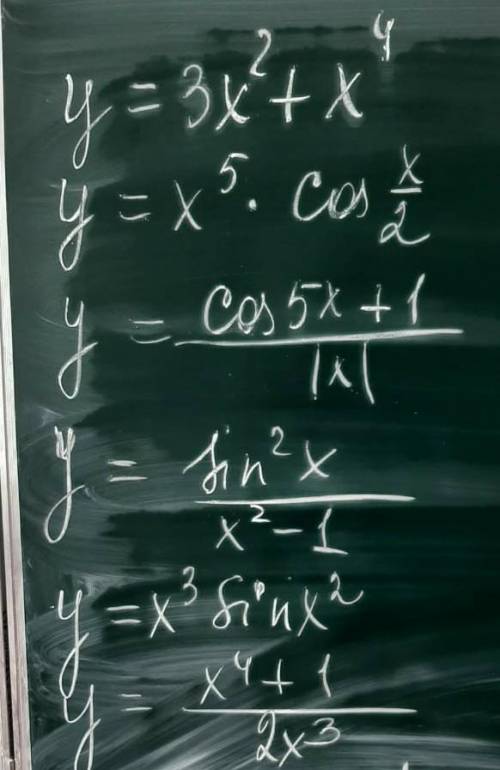 y = 3x² + x⁴
y = x⁵ · cos x/2
y = (cos 5x + 1)/|x|
y = sin²x/(x² - 1)
y = x³ sin x²
y = (x⁴ + 1)/(2x³)